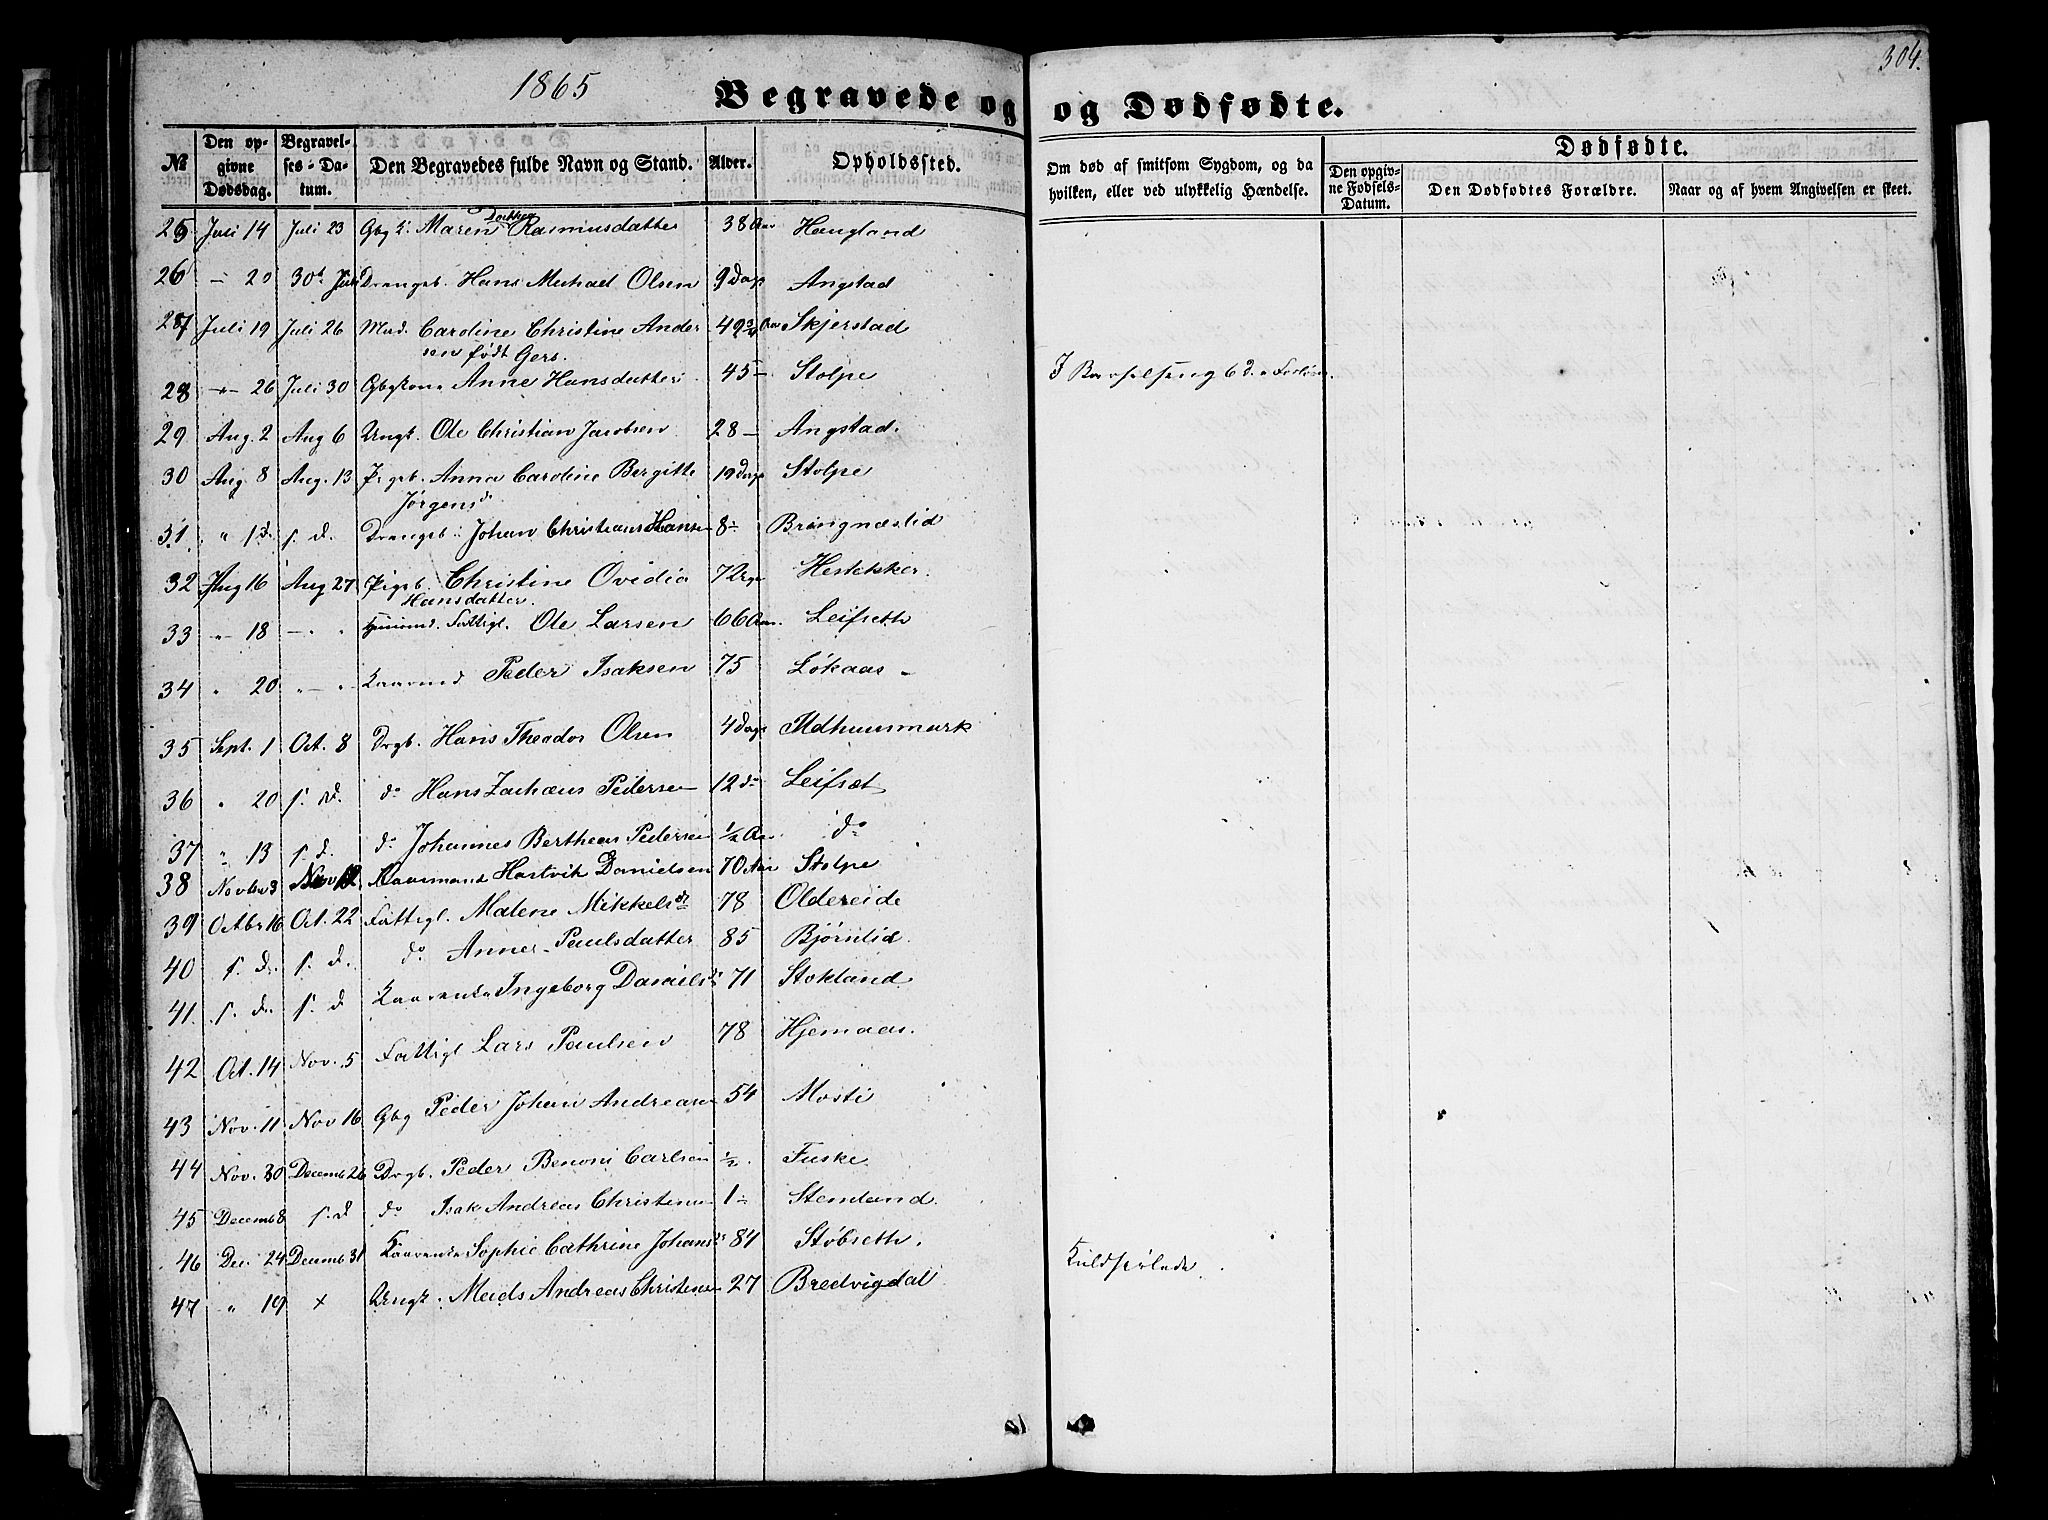 304.
1865
Begravede og
og Dødfødte.
№ Den opgivne Dødsdag. Begravelses-Datum. Den Begravedes fulde Navn og Stand. Alder. Opholdssted.
Om død af smitsom Sygdom, og da hvilken, eller ved ulykkelig Hændelse.
Dødfødte.
Den opgivne Fødsels-Datum. Den Dødfødtes Forældre. Naar og af hvem Angivelsen er skeet.
25 Juli 14 Juli 23 Gbg k. Maren Rasmusdatter 38 Aar Haugland
26 - 20 30t Juli Drengeb. Hans Michael Olsen 9 Dage Angstad
27 Juli 19 Juli 26 Mad. Caroline Christine Ander 49 3/4 Aar Skjerstad
sen født Gers.
28 -"- 26 Juli 30 Gbgkone Anne Hansdatter 45 - Stolpe I Barselseng 6 d.
29 Aug. 2 Aug 6 Ungk. Ole Christian Jacobsen 28 - Angstad.
30 Aug. 8 Aug. 13 Pigeb. Anna Caroline Bergitte 19 Dage Stolpe
Jørgensd
31. " 1 d. s. d. Drengeb. Johan Christian Hansen 8 - Bringnæslid
32 Aug 16 Aug 27 Pigeb. Christine Ovidia 7 Uger
Hansdatter.
33 -"- 18 - " " Fattigl. Ole Larsen 66 Aar. Leifseth
34 " 20 " - " Kaarmd Peder Isaksen 75 Løkaas -
35 Sept. 1 Oct. 8 Drgb. Hans Theodor Olsen 4 Dage
36 " 20 s. d. do Hans Zachæus Pedersen 12 do Leifset
37 " 13 s. d. do Johannes Bertheas Pedersen 1/2 Aar do
38 Novbr 3 Nov 12 Kaarmand Hartvik Danielsen 70 Aar Stolpe
39 Octbr 16 Oct. 22 Fattigl. Malene Mikkelsdr 78 Oldereide
40 s. d. s. d. do Anne Paulsdatter 85 Bjørnlid.
41. s. d. s. d Kaarenke Ingeborg Danielsdr 71 Stokland
42 Oct. 14 Nov. 5 Fattigl Lars Paulsen 78 Hjemaas.
43 Nov. 11 Nov 16 Gbg Peder Johan Andreasen 54 Mosti
44 Nov. 30 Decemb 26 Drgb. Peder Benoni Carlsen 1/2. Fuske.
45 Decemb 8 s. d do Isak Andreas Christensen 1 - Stemland.
46 Dec. 24 Decemb 31 Kaarenke Sophie Cathrine Johansdr 84 Støbseth.
47 " 19 + Ungk. Meids Andreas Christensen 27 Bredvigdal Kuldseilede.